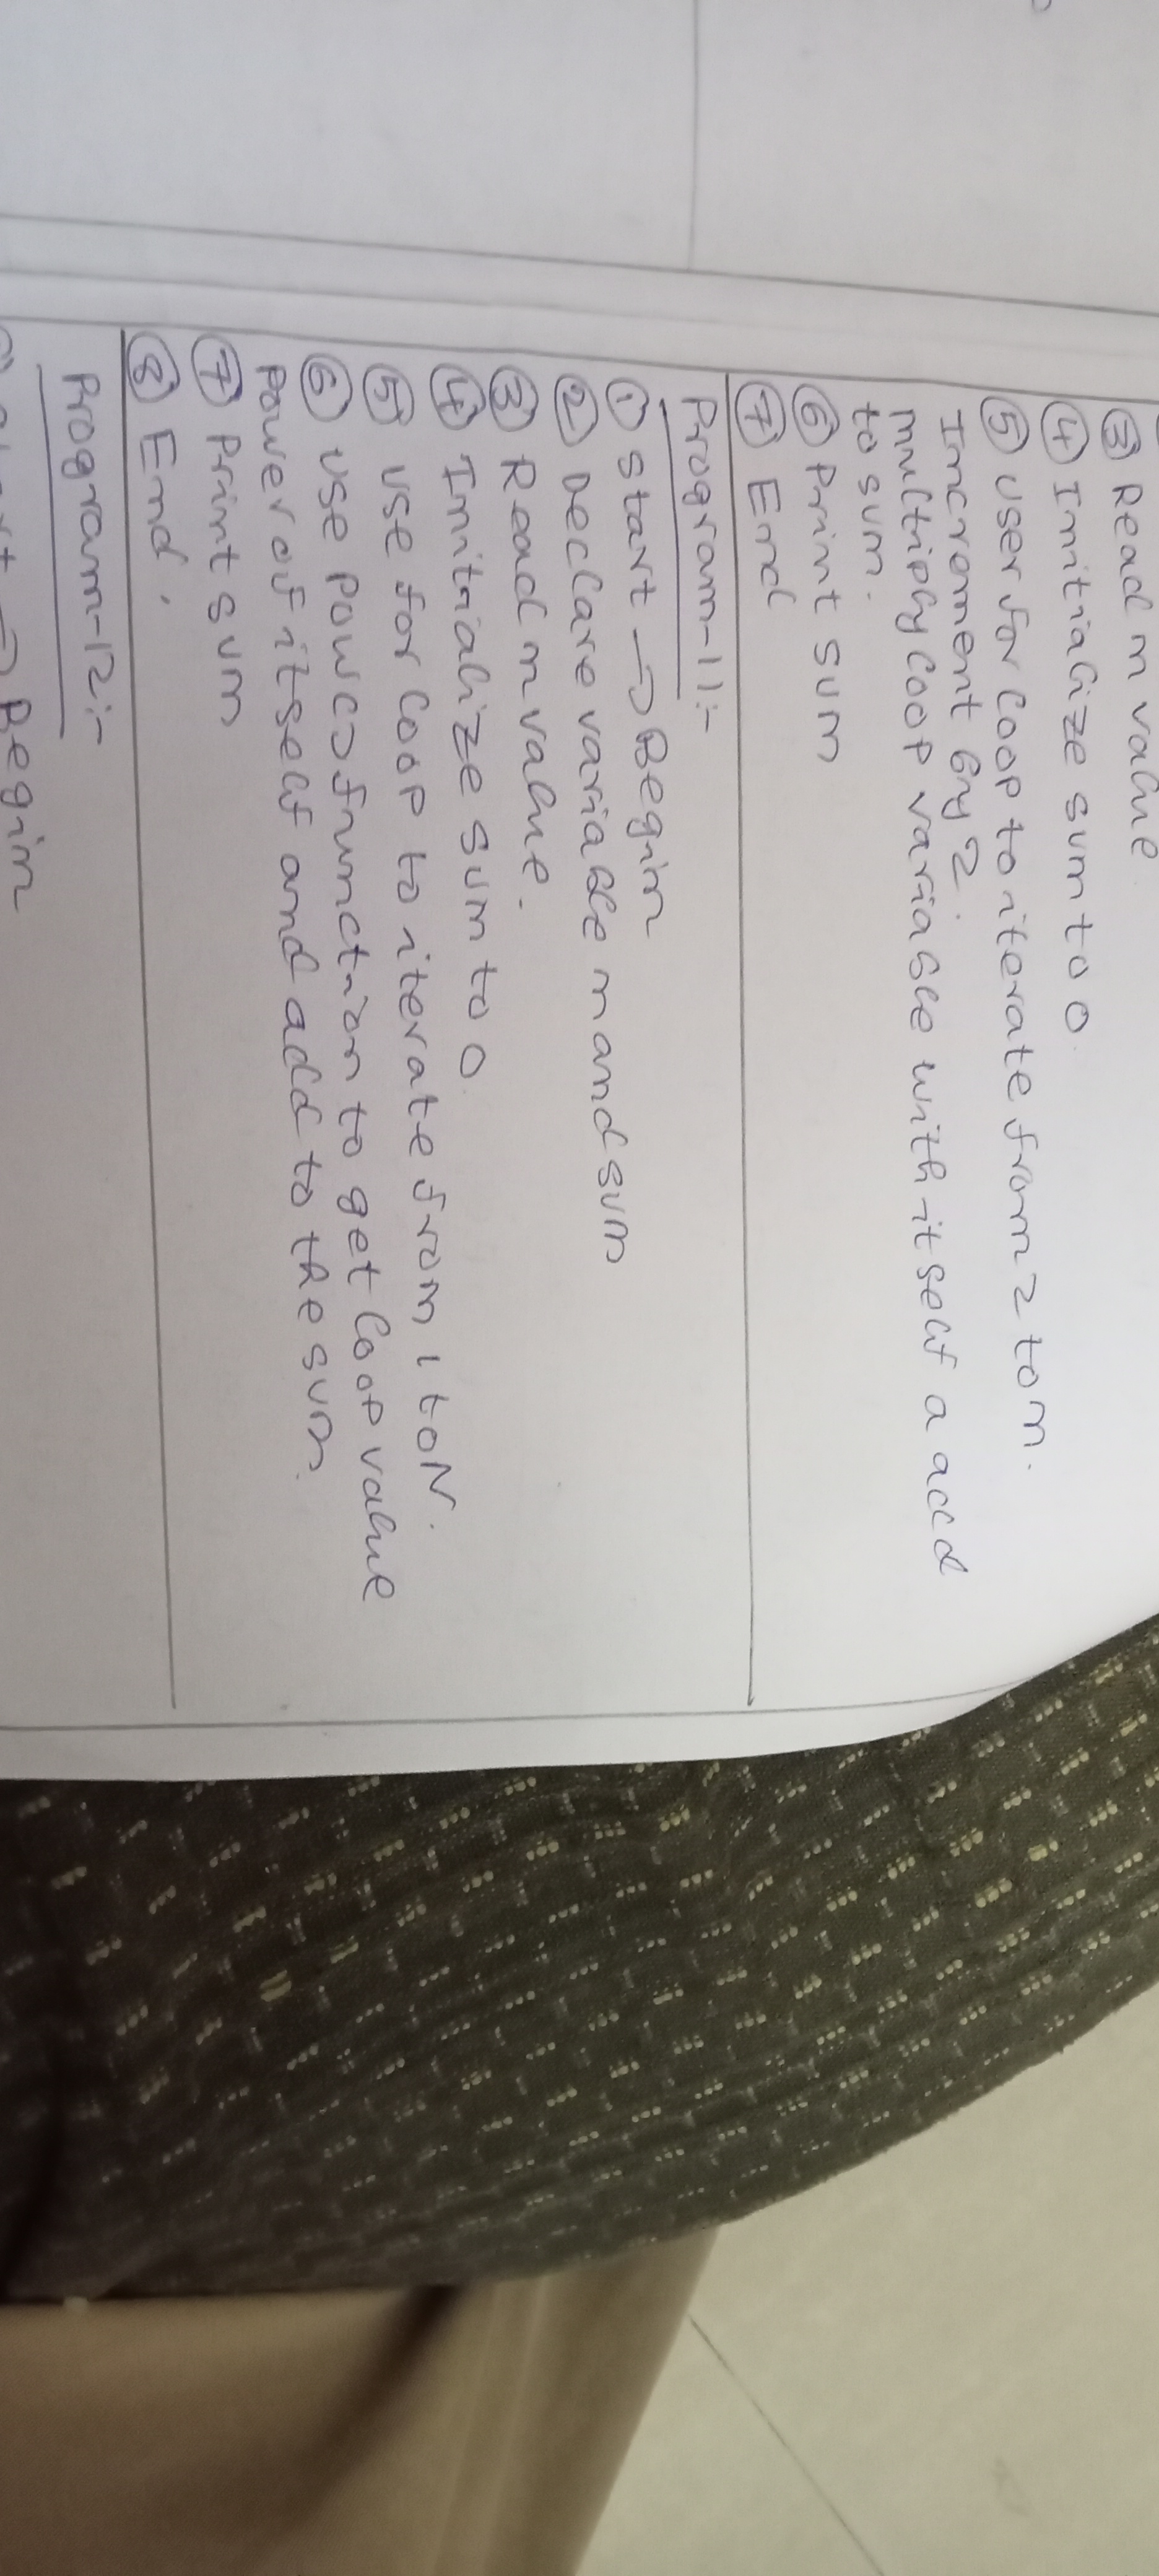 ③ Read n value
④ Initialize sum to 0.
⑤ User for loop to iterate from 2 to n.
Increment by 2.
multiply loop variable with itself a add
to sum.
⑥ Print sum
⑦ End
Program-11:-
① Start → Begin
② Declare variable n and sum
③ Read n value.
④ Initialize sum to 0.
⑤ use for loop to iterate from 1 to N.
⑥ use pow() function to get loop value
power of itself and add to the sum.
⑦ Print sum
⑧ End.
Program-12:-
→ Begin